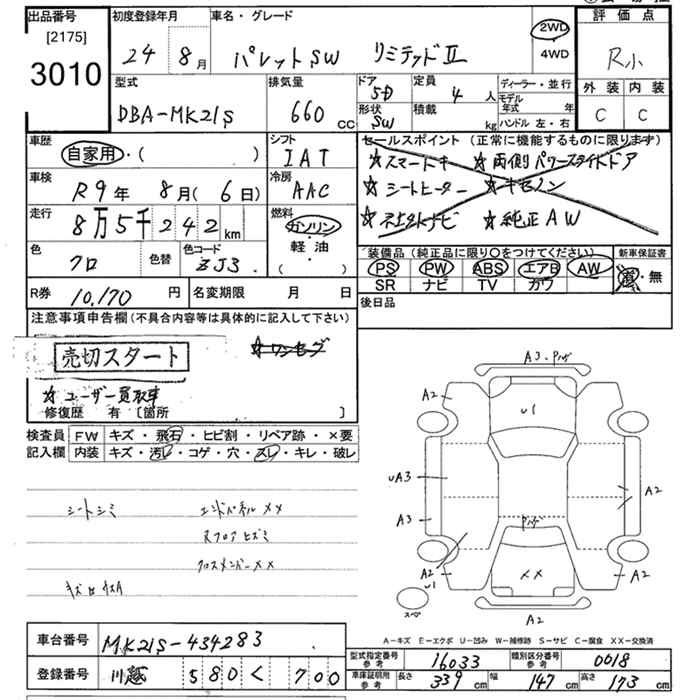 出品番号 初度登録年月 車名・グレード 評価点
[2175] 2WD
3010 24 8月 パレットSW リミテッドⅡ 4WD R小
型式 排気量 ドア 定員 ディーラー・並行 外装 内装
5D 4人 モデル年式 年
DBA-MK21S 660cc 形状 SW 積載 kg ハンドル 左・右 C C
車歴 シフト セールスポイント (正常に機能するものに限ります)
自家用・( ) IAT ☆スマートキー ☆両側パワースライドドア
車検 冷房 ☆シートヒーター ☆キセノン
R9年 8月(6日) AAC
走行 燃料 ☆純正AW
8万5千242km ガソリン
色 色替 色コード 軽・油 装備品(純正品に限り○をつけてください) 新車保証書
クロ ZJ3 ( ) PS PW ABS エアB AW 有・無
SR ナビ TV カワ
R券 10,170円 名変期限 月 日 後日品
注意事項申告欄(不具合内容等は具体的に記入して下さい)
売切スタート ☆ワンセグ
☆ユーザー買取車
修復歴 有〔箇所 〕
検査員 FW キズ・飛石・ヒビ割・リペア跡・×要
記入欄 内装 キズ・汚レ・コゲ・穴・スレ・キレ・破レ
A3
A2 U1
UA3 A2
A3
シートシミ エンドパネルXX
Rフロアヒズミ
クロスメンバーXX
A2 U1 XX A2
スペア A2
A-キズ E-エクボ U-凹み W-補修跡 S-サビ C-腐食 XX-交換済
車台番号 MK21S-434283
型式指定番号 参考 16033 類別区分番号 参考 0018
登録番号 川越 580 く 700
車庫証明用 参考 長さ 339cm 幅 147cm 高さ 173cm